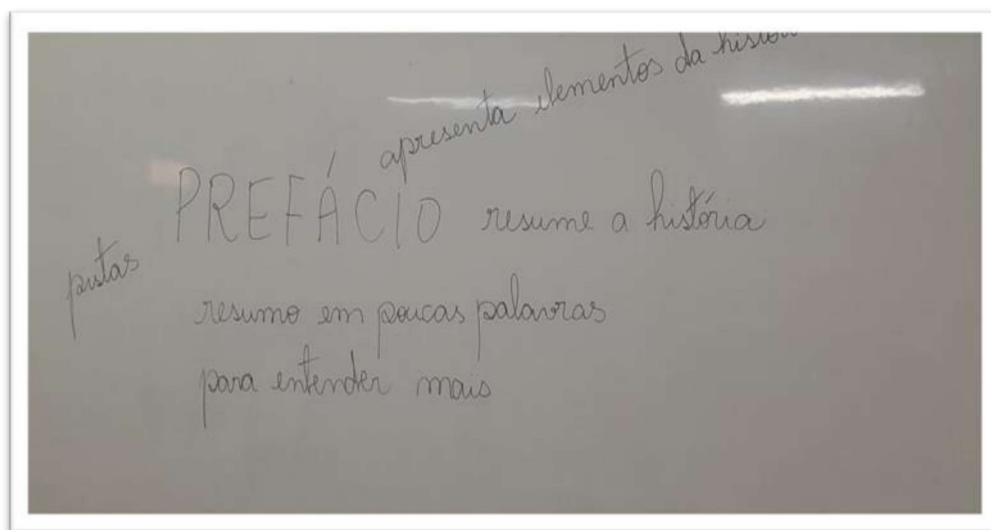 apresenta elementos da
PREFÁCIO resume a história
pistas
resumo em poucas palavras
para entender mais